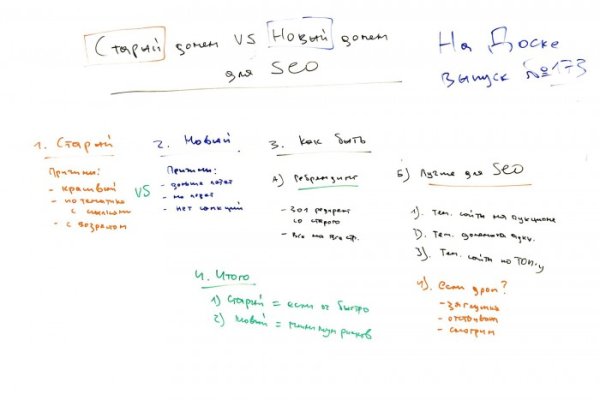 Старый домен VS Новый домен
для SEO
На Доске
выпуск №173
1. Старый
Причины:
- красивый
- по тематике
с ссылками
- с возрастом
VS
2. Новый
Причины:
- дольше
- нет санкций
3. Как быть
А) Ребрендинг
- 301 редирект
со старого
- Все на все стр.
Б) Лучше для SEO
1). Тем. сайты на аукционе
2). Тем. домена аукц.
3). Тем. сайты по ТОП-у
4). Если дроп?
- заглушка
- отстоять
- смотрим
4. Итого
1) Старый = если оч быстро
2) Новый = минимум рисков